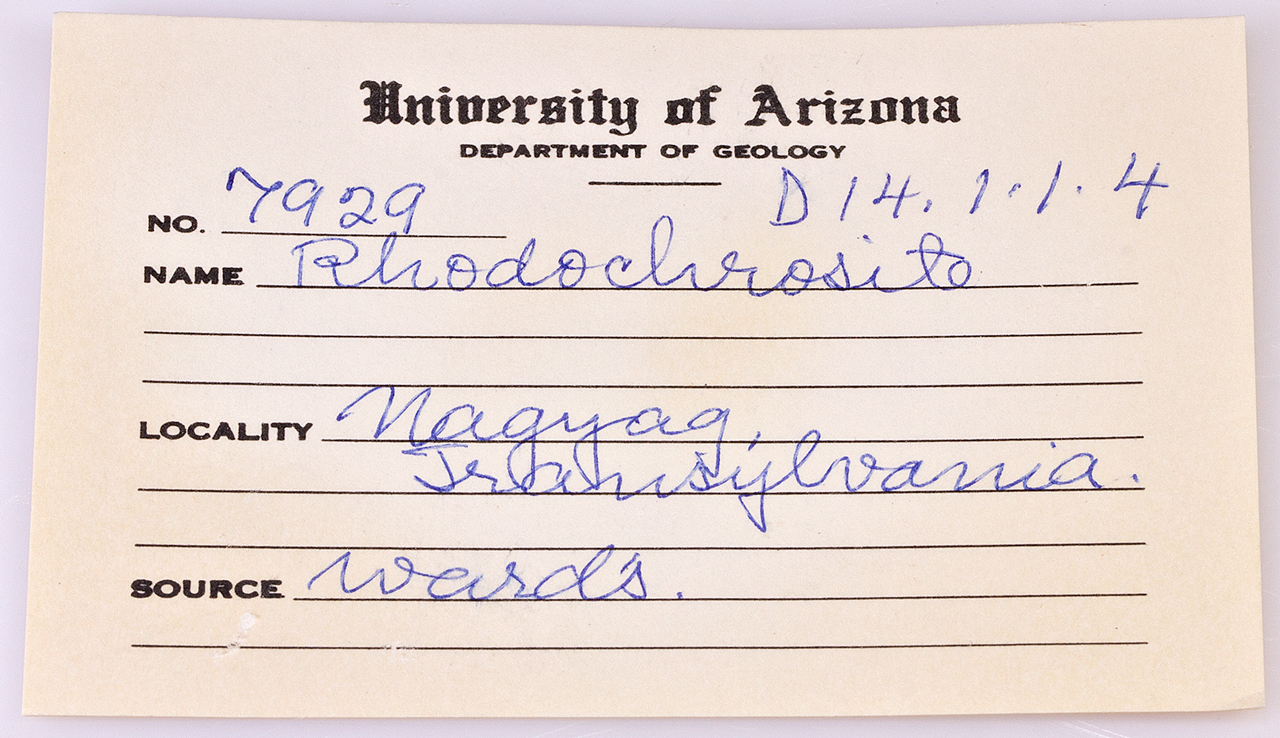 University of Arizona
DEPARTMENT OF GEOLOGY
D 14. 1. 1. 4
NO. 7929
NAME Rhodochrosite
LOCALITY Nagyag,
Transylvania.
SOURCE Ward's.